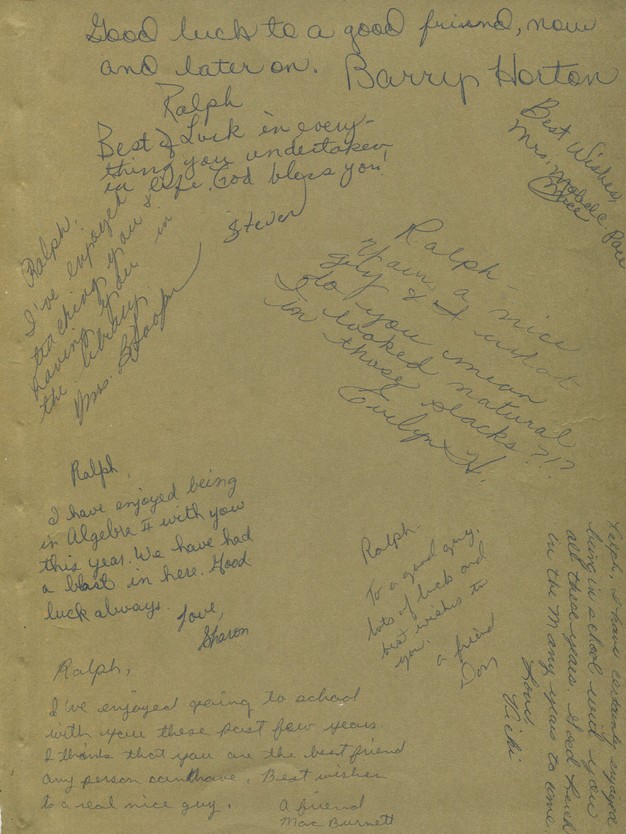 Good luck to a good friend, now
and later on. Barry Horton
Ralph
Best of Luck in every-
thing you undertaken
in life. God bless you!
Steven
Best Wishes
Mrs. Mabele
Ralph,
I've enjoyed
teaching you &
having you in
the library.
Mrs.
Ralph -
Your a nice
guy & I what
do you mean
I looked natural
in those slacks?!?
Evelyn H.
Ralph,
I have enjoyed being
in Algebra II with you
this year. We have had
a blast in here. Good
luck always. Love,
Sharon
Ralph.
To a good guy.
lots of luck and
best wishes to
you.
a friend
Don
Ralph, I have certainly enjoyed
being in school with you
all these years. Good luck
in the many years to come
Love
Vicki
Ralph,
I've enjoyed going to school
with you these past few years.
I think that you are the best friend
any person can have. Best wishes
to a real nice guy. A friend
Mac Burnett